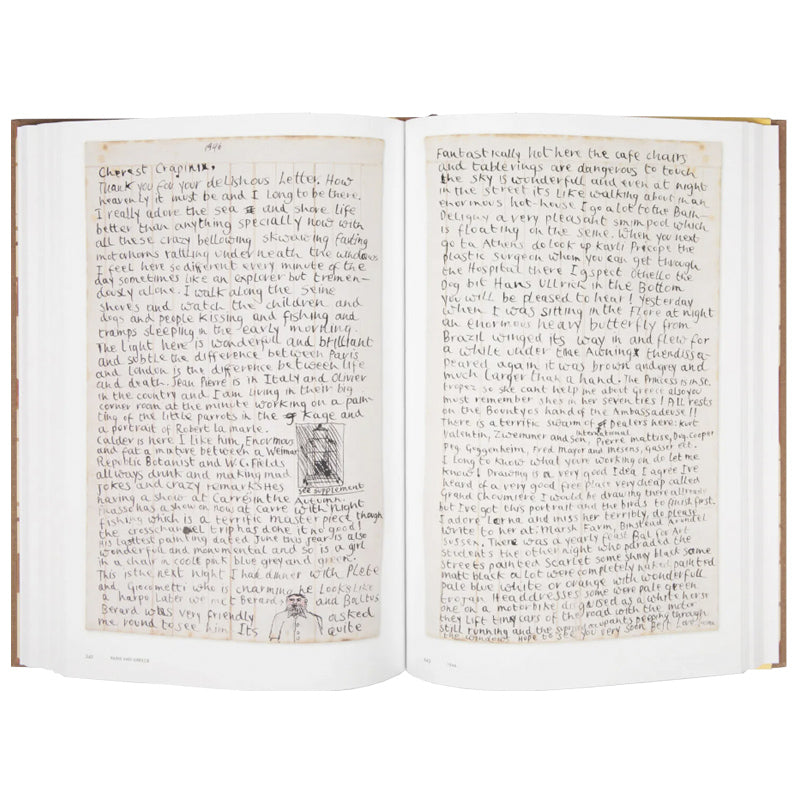 1946
Cherest Crapinix,
Thank you for your delishous Letter. How
heavenly it must be and I long to be there.
I really adore the sea and shore life
better than anything specially now with
all these crazy bellowing skwawing farting
motorhorns rattling underneath the windows
I feel here so different every minute of the
day sometimes like an explorer but tremen-
dously alone. I walk along the Seine
shores and watch the children and
dogs and people kissing and fishing and
tramps sleeping in the early morning.
The light here is wonderful and brilliant
and subtle the difference between Paris
and London is the difference between life
and death. Jean Pierre is in Italy and Olivier
in the country and I am living in their big
corner room at the minute working on a pain-
ting of the little parrots in the Kage and
a portrait of Robert la marle.
Calder is here I like him, Enormous
and fat a mixture between a Weimar
Republic Botanist and W.C. Fields
allways drunk and making mad
jokes and crazy remarks Hes
see supplement
having a show at Carre in the Autumn.
Picasso has a show on now at Carre with Night
fishing which is a terrific masterpiece though
the crosschannel trip has done it no good!
His lattest painting dated June this year is also
wonderful and monumental and so is a girl
in a chair in cools pink blue grey and green.
This is the next night I had dinner with Pete
and Giocometti who is charming he looks like
a harpo. Later we met Berard and Baltus
Berard was very friendly asked
me round to see him Its quite
242 PARIS AND GREECE
Fantastically hot here the cafe chairs
and tablerings are dangerous to touch
the sky is wonderful and even at night
in the street its like walking about in an
enormous hot-house I go a lot to the Bain
Deligny a very pleasant swimpool which
is floating on the seine. When you next
go to Athens do look up Karli Precope the
plastic surgeon whom you can get through
the Hospital there I gspect Othello the
Dog bit Hans Ullrich in the Bottom
you will be pleased to hear! Yesterday
when I was sitting in the Flore at night
an enormous heavy butterfly from
Brazil winged its way in and flew for
a whilt under the Awning then dissa-
peared again it was brown and grey and
much larger than a hand. The Princess is in St.
Tropez so she cant help me about Greece also you
must remember shes in her seventies! All rests
on the Bountyos hand of the Ambassadeuse!!
There is a terrific swarm of international Dealers here: Kurt
Valentin, Zwemmer and son, Pierre mattise, Dug. Cooper
Peg. Guggenheim, Fred Mayor and mesens, Gasser ect.
I long to know what youre working on do let me
know! Drawing is a very good Idea I agree I've
heard of a very good free place very cheap called
Grand Choumiere I would be drawing there allready
but I've got this portrait and the birds to finish first.
I adore Lorna and miss her terribly, do please
write to her at: Marsh Farm, Binstead Arundel
Sussex. There was a yearly feast Bal for Art
Students the other night who paraded the
streets painted Scarlet some shiny black some
matt black a lot were completely naked painted
pale blue white or orange with wonderfull
trogan Headdresses some were pale green
one on a motorbike disguised as a white horse
they lift tiny cars of the road with the motor
still running and the occupants peeping through
the windows Hope to see you very soon Best Love
243 1946